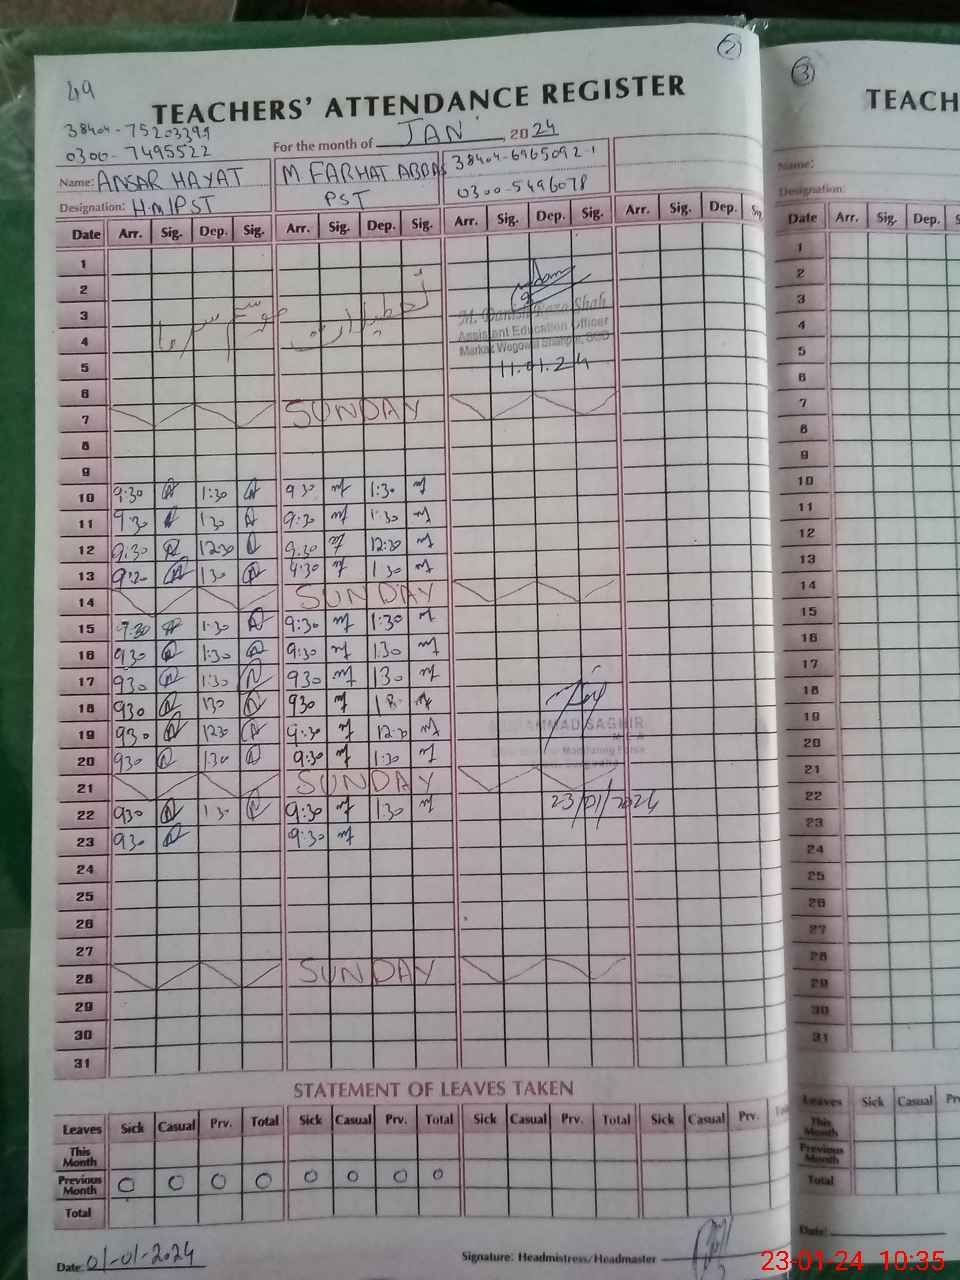 2
49
TEACHERS' ATTENDANCE REGISTER
38404-75203399
For the month of JAN 2024
0300-7495522
Name: ANSAR HAYAT M FARHAT ABBAS 38404-6965092-1
Designation: HM/PST PST 0300-5496078
Date Arr. Sig. Dep. Sig. Arr. Sig. Dep. Sig. Arr. Sig. Dep. Sig. Arr. Sig. Dep. Sig.
1
2
3
4
5
6
موسم سرما
تعطیلات
M. Danish Raza Shah
Assistant Education Officer
Markaz
11.01.24
7 SUNDAY
8
9
10 9:30 1:30 9 30 1:30
11 9 30 1 30 9:30 1:30
12 9:30 12:30 9:30 12:30
13 9:30 1 30 9:30 1 30
14 SUNDAY
15 9:30 1:30 9:30 1:30
16 930 1:30 9:30 1:30
17 930 1:30 930 130
18 930 130 930
19 930 1230 9:30 12:30
20 930 130 9:30 1:30
MUHAMMAD SAGHIR
Monitoring Force
21 SUNDAY
22 930 1 30 9:30 1:30
23/01/2024
23 930 9:30
24
25
26
27
28 SUNDAY
29
30
31
STATEMENT OF LEAVES TAKEN
Leaves Sick Casual Prv. Total Sick Casual Prv. Total Sick Casual Prv. Total Sick Casual Prv.
This Month
Previous Month 0 0 0 0 0 0 0 0
Total
Date: 01-01-2024 Signature: Headmistress/Headmaster
3
TEACH
Name:
Designation:
Date Arr. Sig. Dep.
1
2
3
4
5
6
7
8
9
10
11
12
13
14
15
16
17
18
19
20
21
22
23
24
25
26
27
28
29
30
31
Leaves Sick Casual
This Month
Previous Month
Total
Date:
23-01-24 10:35